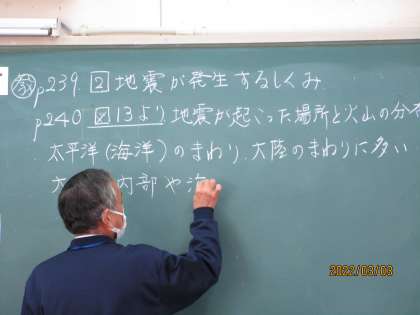 教 p239. 2 地震が発生するしくみ
p240 図13より 地震が起こった場所と火山の分
・太平洋(海洋)のまわり、大陸のまわりに多い
大 内部や
2022/03/03